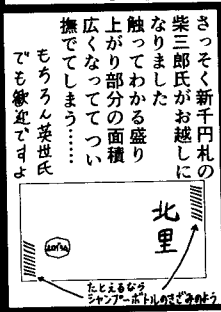 さっそく新千円札の
柴三郎氏がお越しに
なりました
触ってわかる盛り
上がり部分の面積
広くなってて つい
撫でてしまう……
もちろん英世氏
でも歓迎ですよ
北里
たとえるなら
シャンプーボトルのきざみのよう